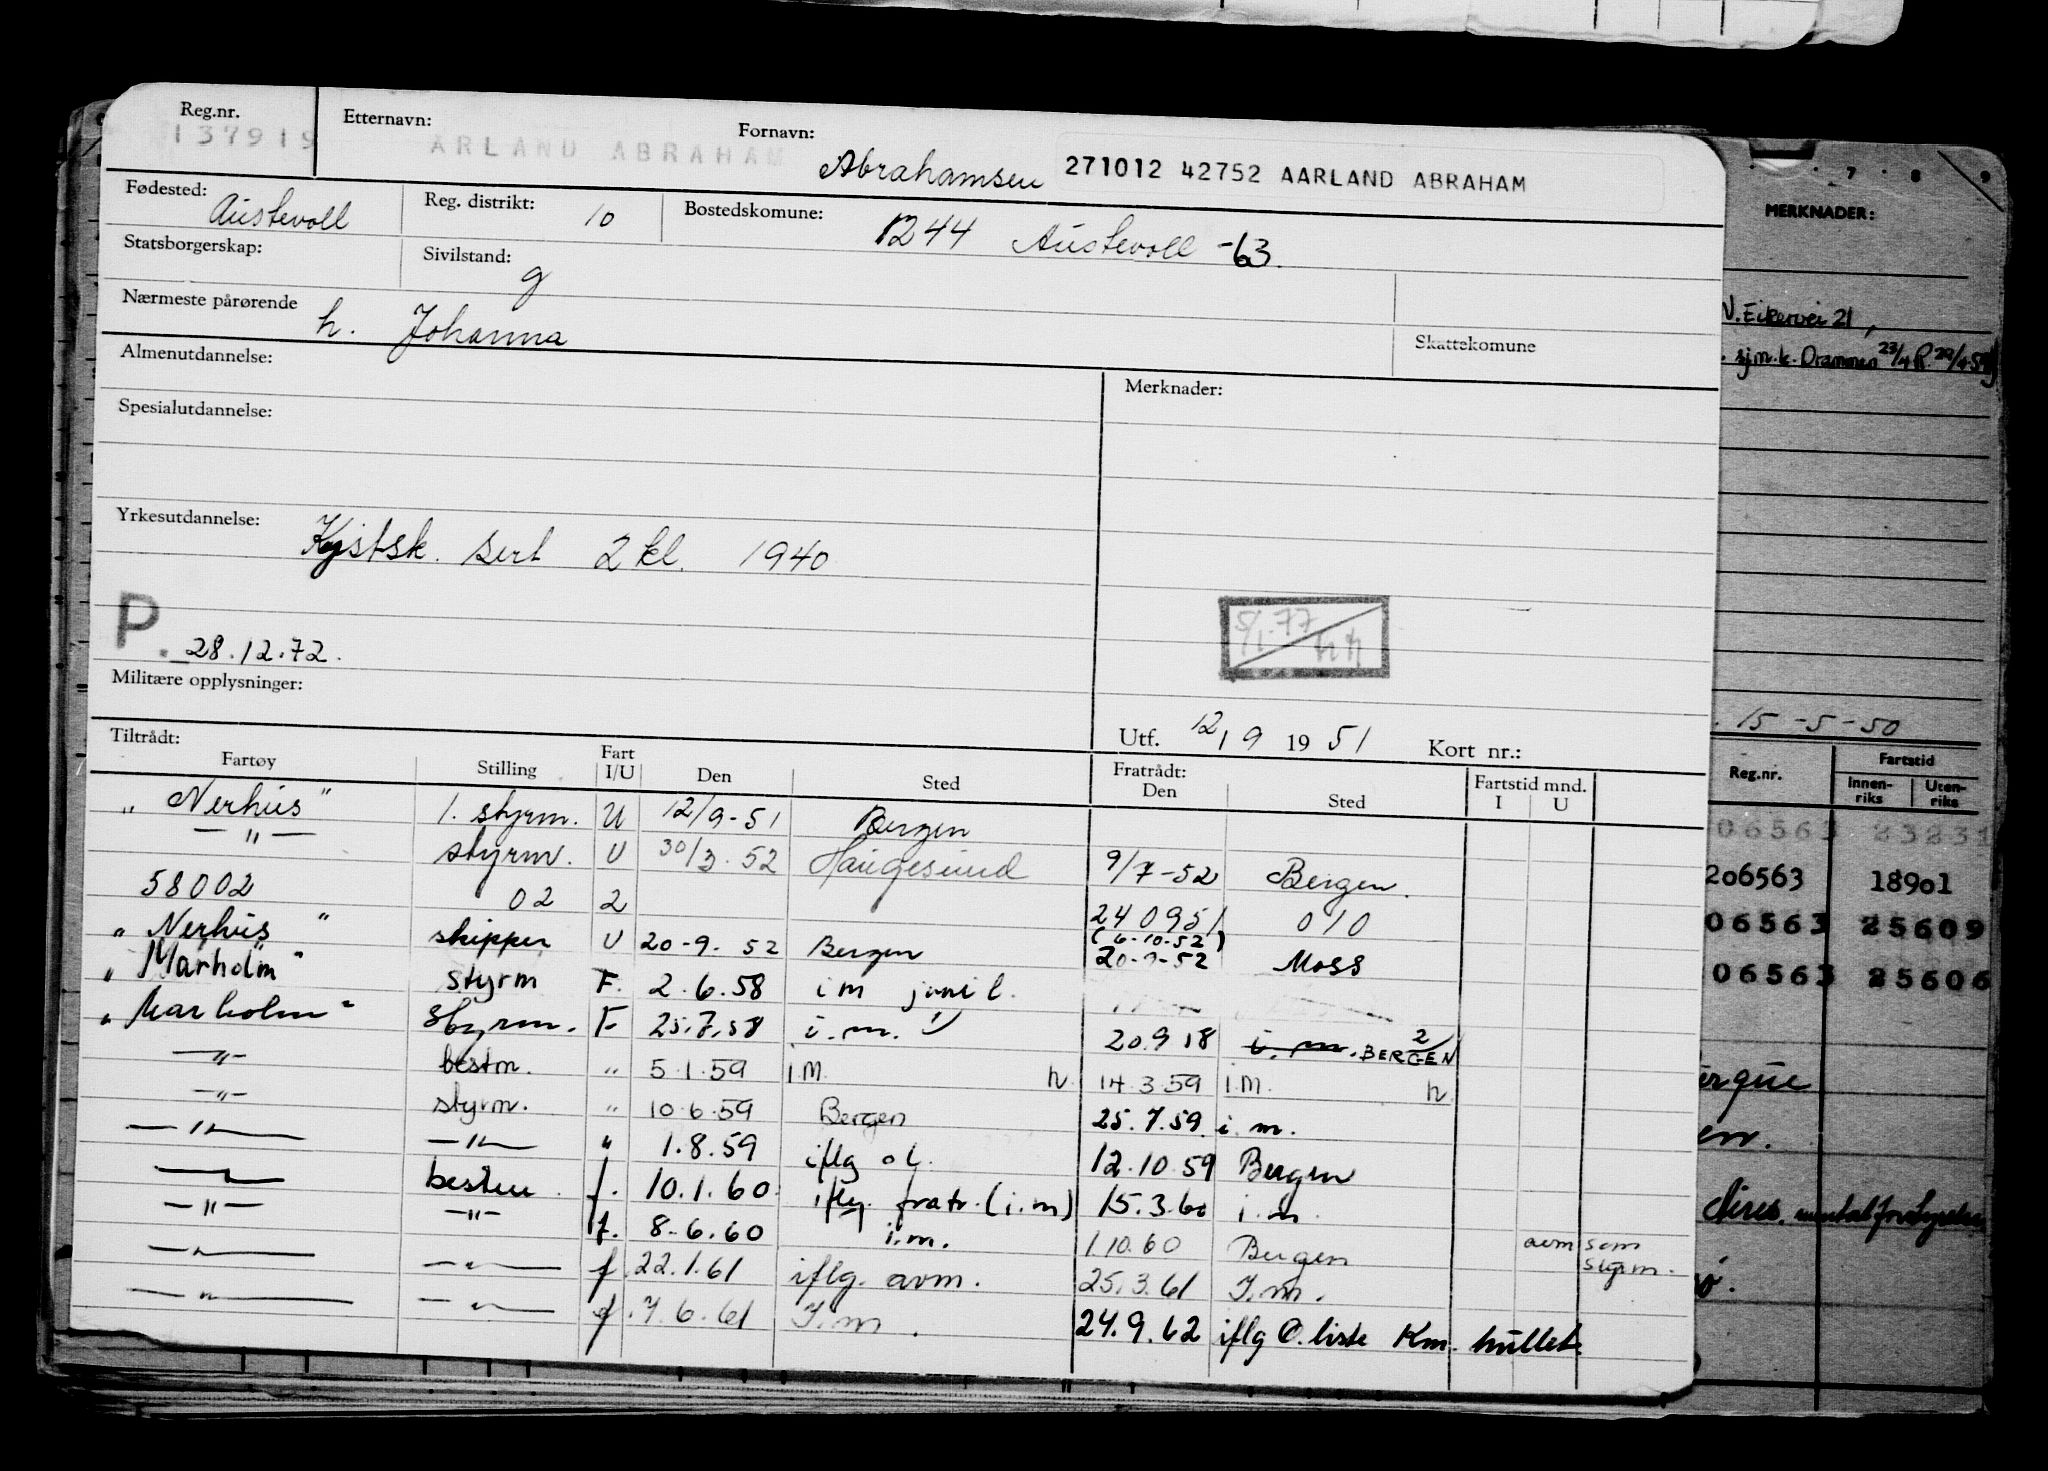 Reg.nr. Etternavn: Fornavn:
137919 ARLAND ABRAHAM Abrahamsen 271012 42752 AARLAND ABRAHAM
Fødested: Austevoll Reg. distrikt: 10 Bostedskomune: 1244 Austevoll -63.
Statsborgerskap: Sivilstand: g
Nærmeste pårørende h. Johanna Skattekomune
Almenutdannelse: Merknader:
Spesialutdannelse:
Yrkesutdannelse: Kystsk. sert 2 kl. 1940
P. 28.12.72.
5/1.77
Militære opplysninger:
Utf. 12/9 1951 Kort nr.:
Tiltrådt: Fratrådt:
Fartøy Stilling Fart I/U Den Sted Den Sted Fartstid mnd. I U
"Nerhus" 1. styrm. U 12/9-51 Bergen
—"— styrm. U 30/3.52 Haugesund 9/7-52 Bergen.
58002 02 2 240951 010
"Nerhus" skipper U 20-9-52 Bergen (6-10-52) 20-9-52 Moss
"Marholm" styrm F. 2.6.58 i m juni l.
"Marholm" Styrm. F. 25.7.58 i.m. 1) 20.9 58 i. m. BERGEN 2)
—"— bestm. " 5.1.59 i M. h. 14.3.59 i.M. h.
—"— styrm. " 10.6.59 Bergen 25.7.59. i. m.
—"— —"— " 1.8.59 iflg ol. 12.10.59 Bergen
—"— bestm. f. 10.1.60. iflg. fratr. (i.m) 15.3.60 i. m.
—"— —"— f. 8.6.60 i.m. 1.10.60 Bergen avm som styrm.
—"— —"— f. 22.1.61 iflg. avm. 25.3.61 I. m.
—"— —"— f. 7.6.61 I. m. 24.9.62 iflg O. liste Km. hullet.
7 8 9
MERKNADER:
V. Eikervei 21,
sjm.k. Drammen 23/4 R. 29/4-59
15-5-50
Reg.nr. Fartstid
Innen-riks Uten-riks
06563 23231
206563 18901
06563 25609
06563 25606
en.